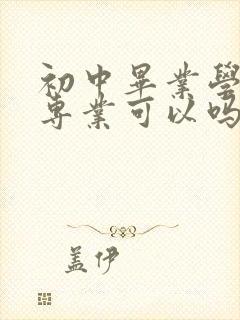 初中畢業學
専業可以吗
盖伊